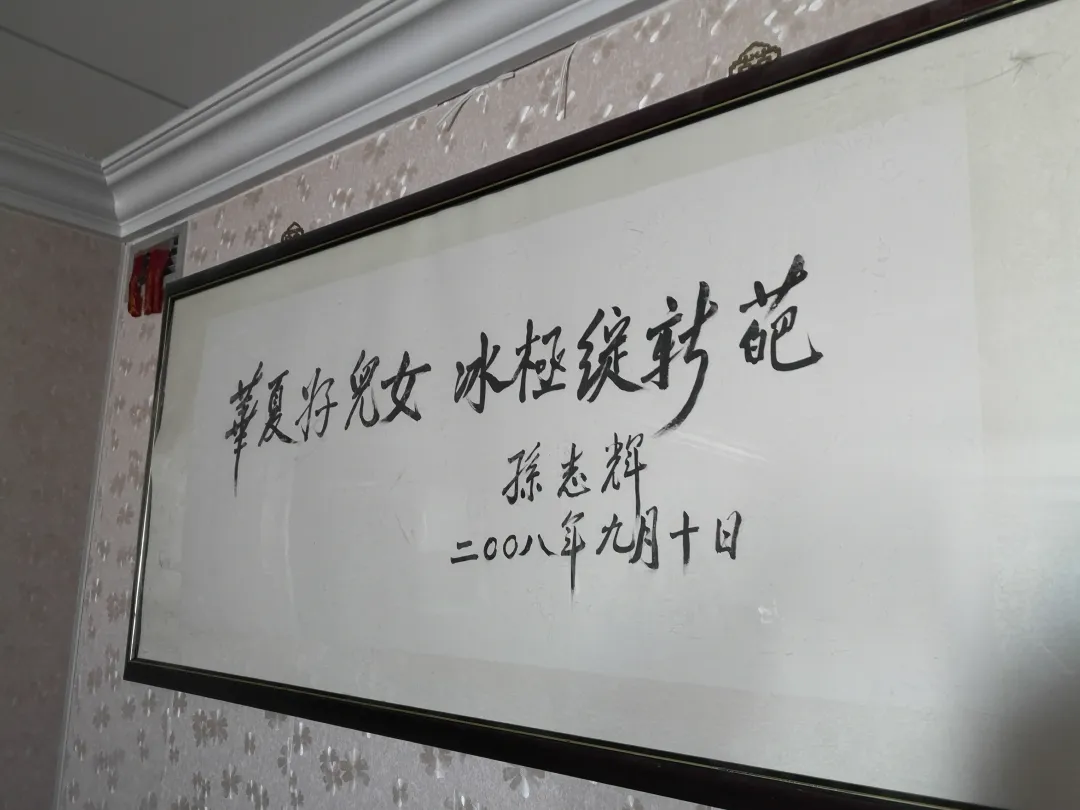 華夏好兒女 冰極綻新葩
孫志輝
二〇〇八年九月十日